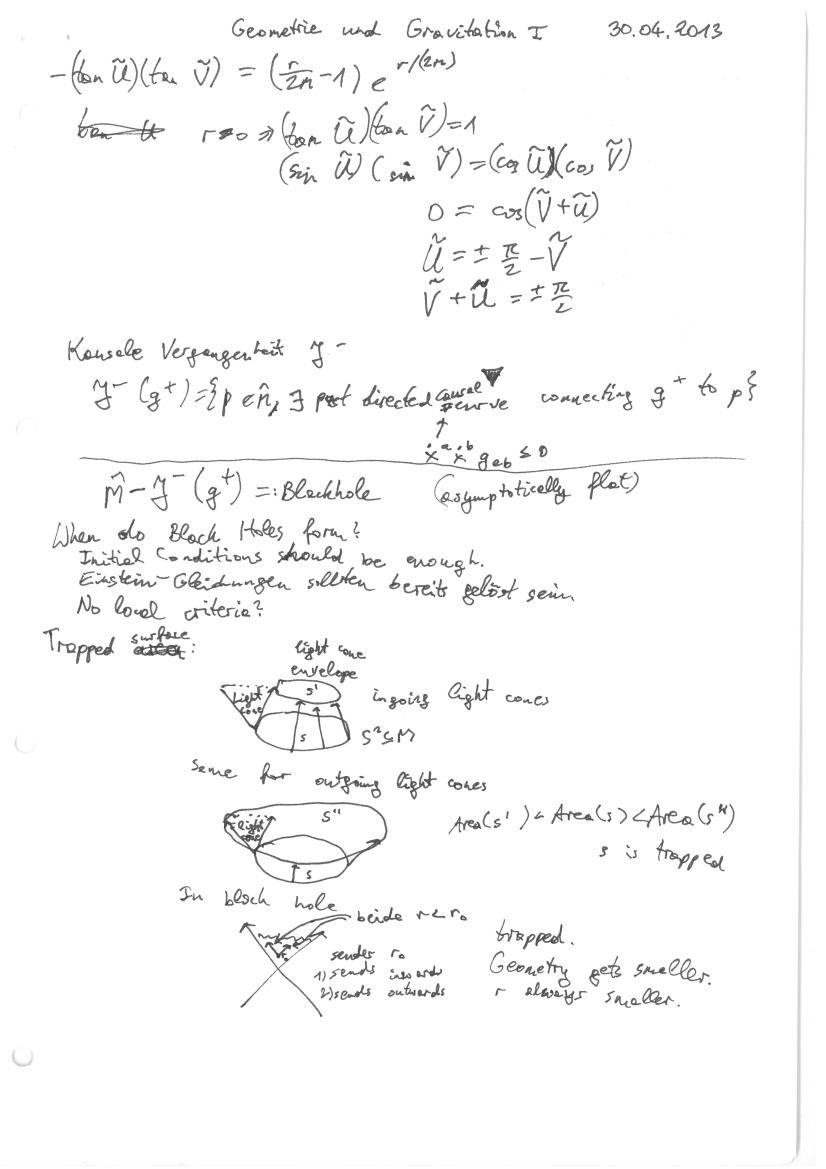 Geometrie und Gravitation I 30.04.2013
-(tan Ũ)(tan Ṽ) = (r/2m -1) e^{r/(2m)}
r=0 ⇒ (tan Ũ)(tan Ṽ)=1
(sin Ũ)(sin Ṽ)=(cos Ũ)(cos Ṽ)
0 = cos(Ṽ+Ũ)
Ũ = ± π/2 - Ṽ
Ṽ + Ũ = ± π/2
Kausale Vergangenheit J⁻
J⁻(g⁺)={p ∈ M̂, ∃ past directed causal curve connecting g⁺ to p}
↑
ẋ^a ẋ^b g_{ab} ≤ 0
M̂ - J⁻(g⁺) =: Blackhole (asymptotically flat)
When do Black Holes form?
Initial Conditions should be enough.
Einstein-Gleichungen sollten bereits gelöst sein.
No local criteria?
Trapped surface:
light cone
envelope
light
cone
S'
ingoing light cones
S
S²⊆M
Same for outgoing light cones
S''
light
cone
S
Area(S') < Area(S) < Area(S'')
S is trapped
In black hole
beide r<r₀
r₀
sender r₀
1) sends inwards
2) sends outwards
trapped.
Geometry gets smaller.
r always smaller.